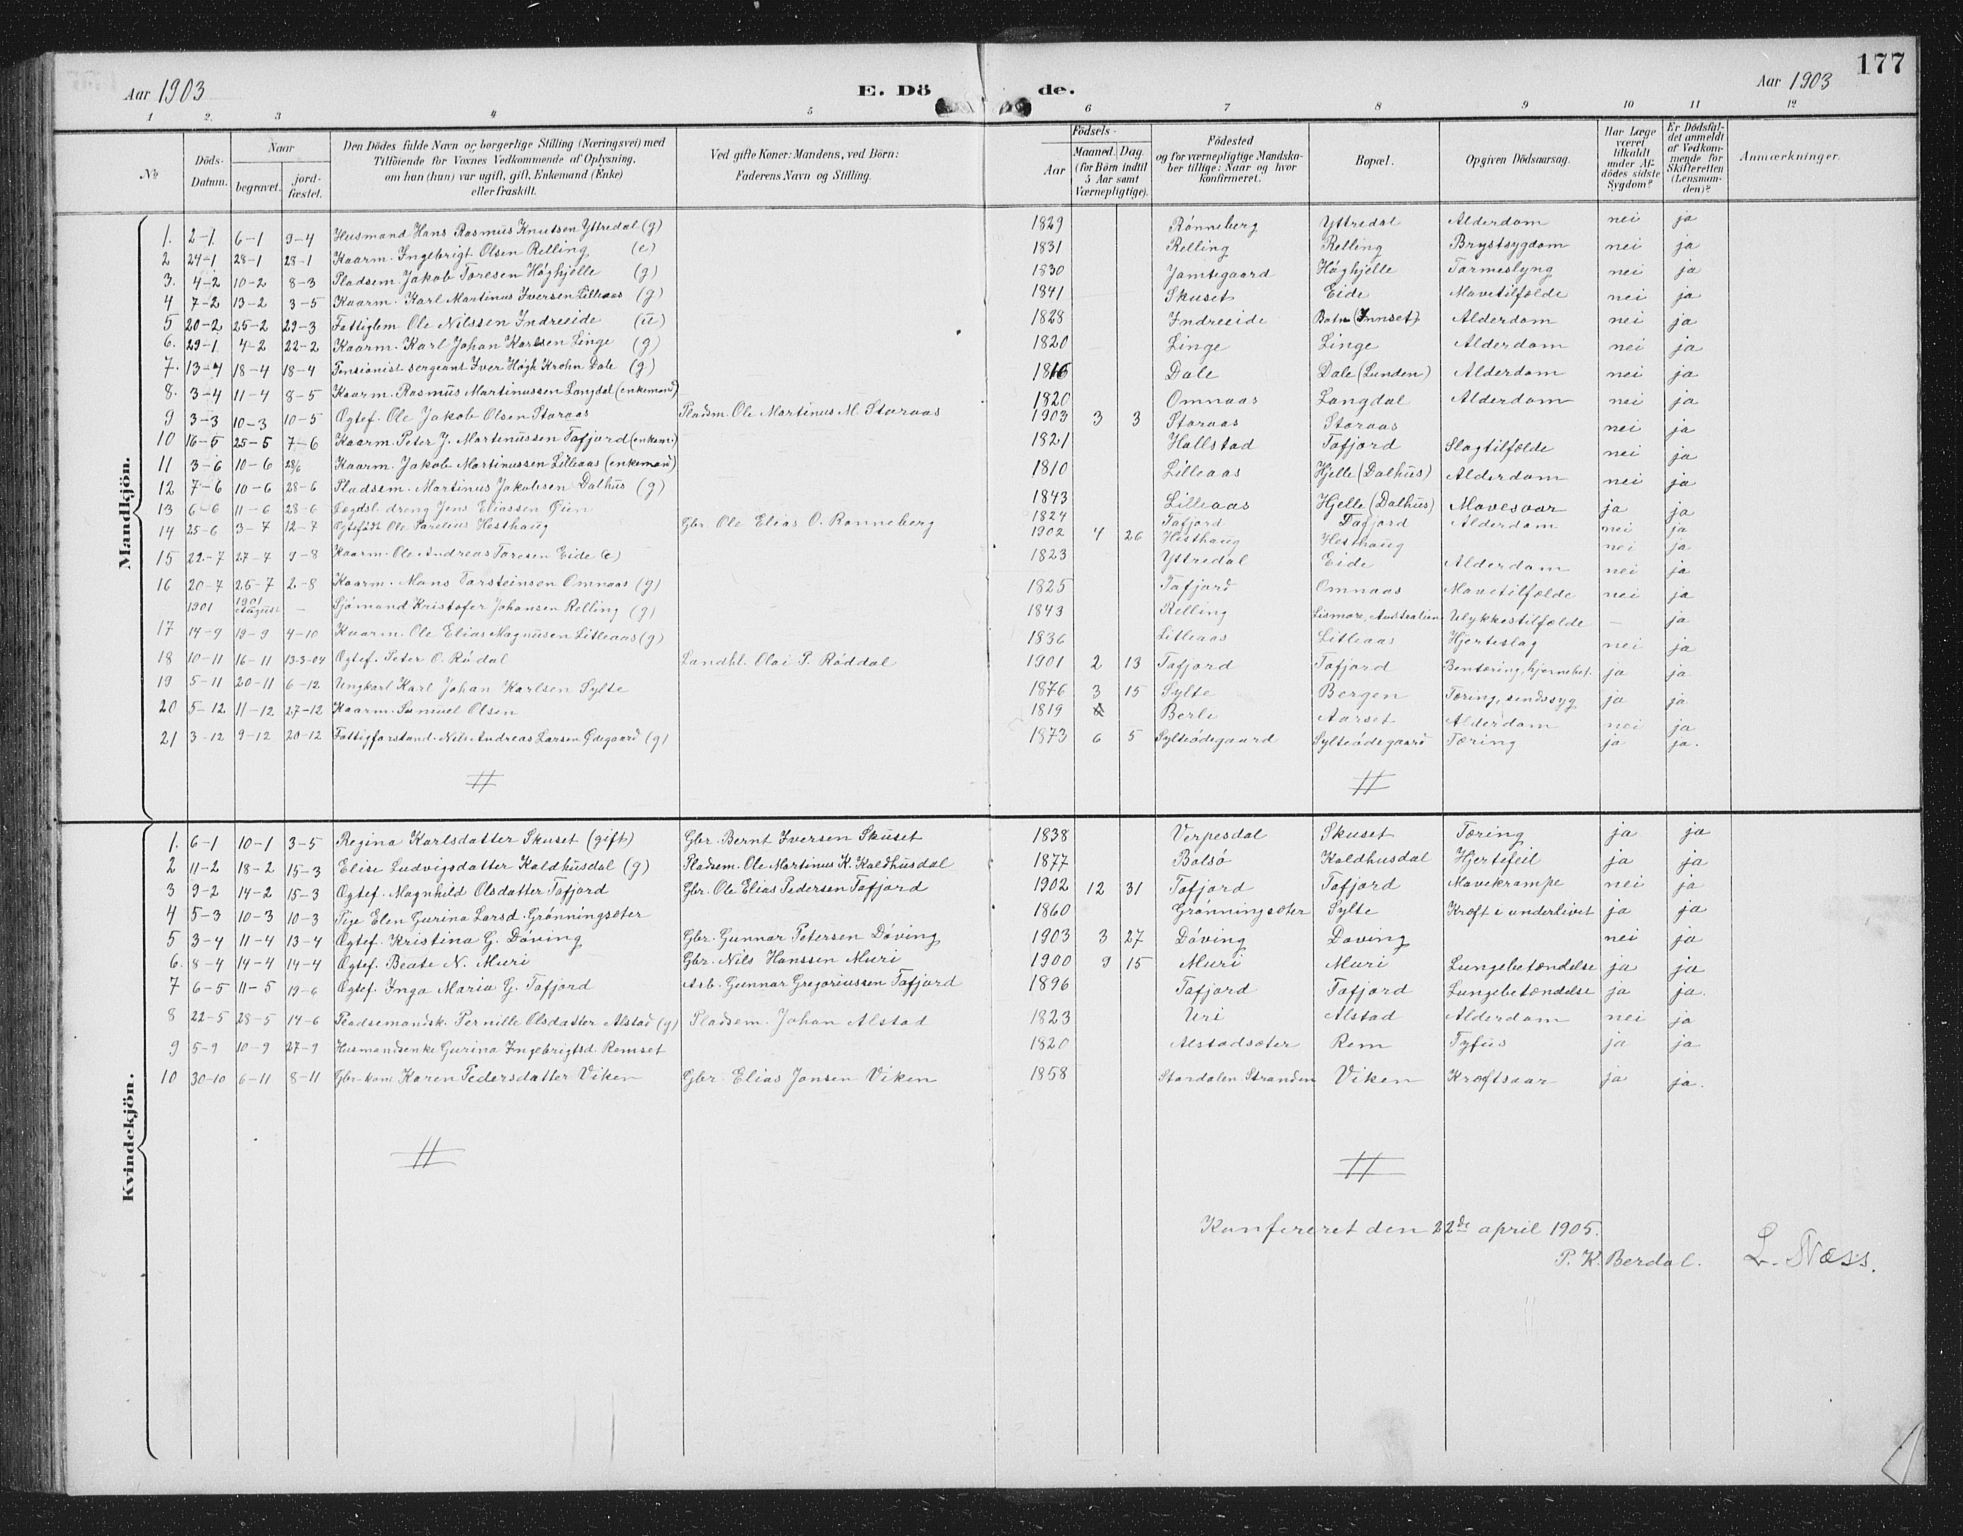 177
Aar 1903 E. Dö de. Aar 1903
1 2. 3 4 5 6 7 8 9 10 11 12
No Döds-Datum. Naar begravet. jord-fæstet. Den Dödes fulde Navn og borgerlige Stilling (Næringsvei) med Tilföiende for Voxnes Vedkommende af Oplysning, om han (hun) var ugift, gift, Enkemand (Enke) eller fraskilt. Ved gifte Koner: Mandens, ved Börn: Faderens Navn og Stilling. Födsels- Aar Maaned. Dag (for Börn indtil 5 Aar samt Værnepligtige). Födested og for værnepligtige Mandskaber tillige: Naar og hvor konfirmeret. Bopæl. Opgiven Dödsaarsag. Har Læge været tilkaldt under Afdödes sidste Sygdom? Er Dödsfaldet anmeldt af Vedkommende for Skifteretten (Lensmanden)? Anmærkninger.
Mandkjön.
1. 2-1 6-1 9-4 Husmand Hans Rasmus Knutsen Yttredal (g) 1829 Rønneberg Yttredal Alderdom nei ja
2 24-1 28-1 28-1 Kaarm. Ingebrigt Olsen Relling (e) 1831 Relling Relling Brystsygdom nei ja
3. 4-2 10-2 8-3 Pladsem. Jakob Toresen Høghjelle (g) 1830 Jamtegaard Høghjelle Tarmeslyng nei ja
4 7-2 13-2 3-5 Kaarm. Karl Martinus Iversen Lilleaas (g) 1841 Skuset Eide Mavetilfælde nei ja
5 20-2 25-2 29-3 Fattiglem Ole Nilssen Indreeide (u) 1828 Indreeide Botn (Innset) Alderdom nei ja
6. 29-1 4-2 22-2 Kaarm. Karl Johan Karlsen Linge (g) 1820 Linge Linge Alderdom nei ja
7. 13-4 18-4 18-4 Pensionist sergeant Iver Høgh Krohn Dale (g) 1816 Dale Dale (Lunden) Alderdom nei ja
8. 3-4 11-4 8-5 Kaarm. Rasmus Martinussen Langdal (enkemand) 1820 Omnaas Langdal Alderdom nei ja
9 3-3 10-3 10-5 Ægtef. Ole Jakob Olsen Storaas Pladsm. Ole Martinus M. Storaas 1903 3 3 Storaas Storaas nei ja
10 16-5 25-5 7-6 Kaarm. Peter J. Martinussen Tafjord (enkem.) 1821 Hallstad Tafjord Slagtilfælde nei ja
11 3-6 10-6 28/6 Kaarm. Jakob Martinussen Lilleaas (enkemand) 1810 Lilleaas Hjelle (Dalhus) Alderdom nei ja
12 7-6 10-6 28-6 Pladsem. Martinus Jakobsen Dalhus (g) 1843 Lilleaas Hjelle (Dalhus) Mavesaar ja ja
13 6-6 11-6 28-6 Lægdsl. dreng Jens Eliassen Øien 1824 Tafjord Tafjord Alderdom nei ja
14 25-6 3-7 12-7 Ægtefødt Ole Parelius Hesthaug Gbr. Ole Elias O. Ronneberg 1902 4 26 Hesthaug Hesthaug nei ja
15 22-7 27-7 9-8 Kaarm. Ole Andreas Toresen Eide (e) 1823 Yttredal Eide Alderdom nei ja
16 20-7 25-7 2-8 Kaarm. Mons Torsteinsen Omnaas (g) 1825 Tafjord Omnaas Mavetilfælde nei ja
1901 1901 August — Sjømand Kristofer Johansen Relling (g) 1843 Relling Lismore, Australien Ulykkestilfælde — ja
17 14-9 19-9 4-10 Kaarm. Ole Elias Magnusen Lilleaas (g) 1836 Lilleaas Lilleaas Hjerteslag nei ja
18 10-11 16-11 13-3-04 Ægtef. Peter O. Rødal Landhl. Olai P. Røddal 1901 2 13 Tafjord Tafjord Bentæring, hjernebet. ja ja
19 5-11 20-11 6-12 Ungkarl Karl Johan Karlsen Sylte 1876 3 15 Sylte Bergen Tæring, sindssyg ja ja
20 5-12 11-12 27-12 Kaarm. Samuel Olsen 1819 Berli Aarset Alderdom nei ja
21 3-12 9-12 20-12 Fattigforstand. Nils Andreas Larsen Ødegaard (g) 1873 6 5 Sylteødegaard Sylteødegaard Tæring ja ja.
Kvindekjön.
1. 6-1 10-1 3-5 Regina Karlsdatter Skuset (gift) Gbr. Bernt Iversen Skuset 1838 Verpesdal Skuset Tæring ja ja
2 11-2 18-2 15-3 Elise Ludvigsdatter Kaldhusdal (g) Pladsem. Ole Martinus K. Kaldhusdal 1877 Bolsø Kaldhusdal Hjertefeil ja ja
3 9-2 14-2 15-3 Ægtef. Magnhild Olsdatter Tafjord Gbr. Ole Elias Pedersen Tafjord 1902 12 31 Tafjord Tafjord Mavekrampe nei ja
4 5-3 10-3 10-3 Pige Elen Gurina Larsd. Grønningsæter 1860 Grønningsæter Sylte Kræft i underlivet ja ja
5 3-4 11-4 13-4 Ægtef. Kristina G. Døving Gbr. Gunnar Petersen Døving 1903 3 27 Døving Døving nei ja
6. 8-4 14-4 14-4 Ægtef. Beate N. Muri Gbr. Nils Hanssen Muri 1900 9 15 Muri Muri Lungebetændelse ja ja
7 6-5 11-5 19-6 Ægtef. Inga Maria G. Tafjord Arb. Gunnar Gregoriussen Tafjord 1896 Tafjord Tafjord Lungebetændelse ja ja.
8 22-5 28-5 14-6 Pladsemandsk. Pernille Olsdatter Alstad (g) Pladsem. Johan Alstad 1823 Uri Alstad Alderdom nei ja
9 5-9 10-9 27-9 Husmandsenke Gurina Ingebrigtsd. Remset 1820 Alstadsæter Rem Tyfus ja ja
10 30-10 6-11 8-11 Gbr-kone Karen Pedersdatter Viken Gbr. Elias Jonsen Viken 1858 Stordalen Stranden Viken Kræftsaar ja ja.
Konfereret den 22de april 1905.
P. K. Berdal. L. Næss.